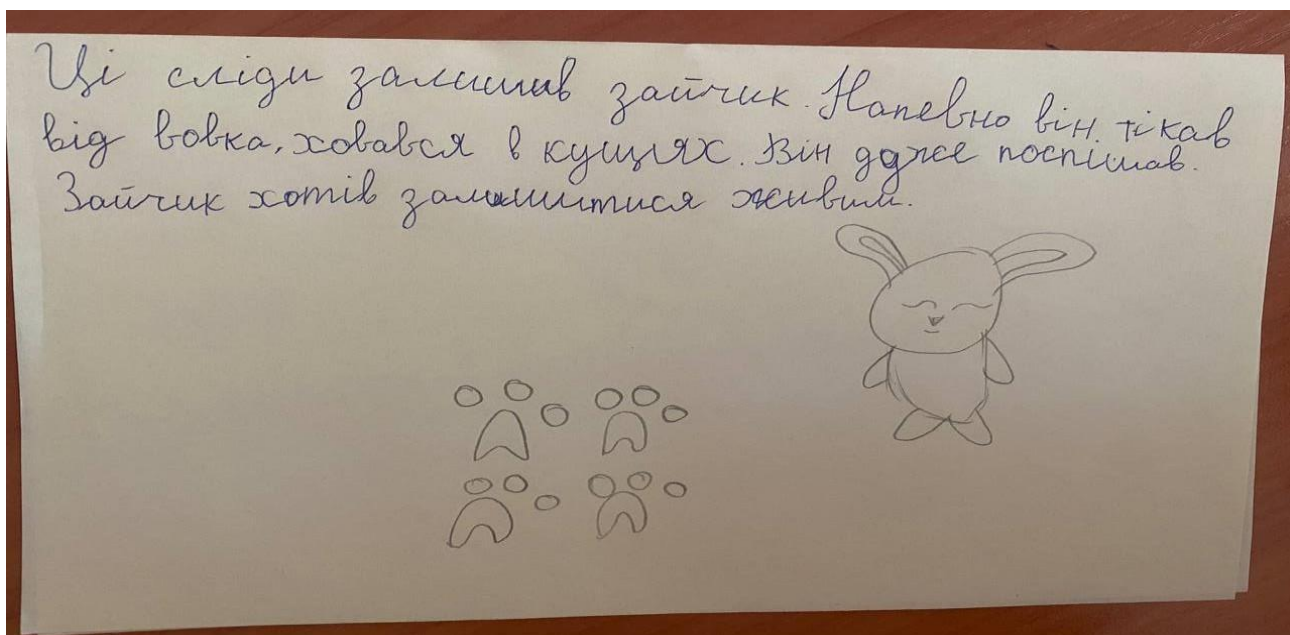 Ці сліди залишив зайчик. Напевно він тікав
від вовка, ховався в кущях. Він дуже поспішав.
Зайчик хотів залишитися живим.